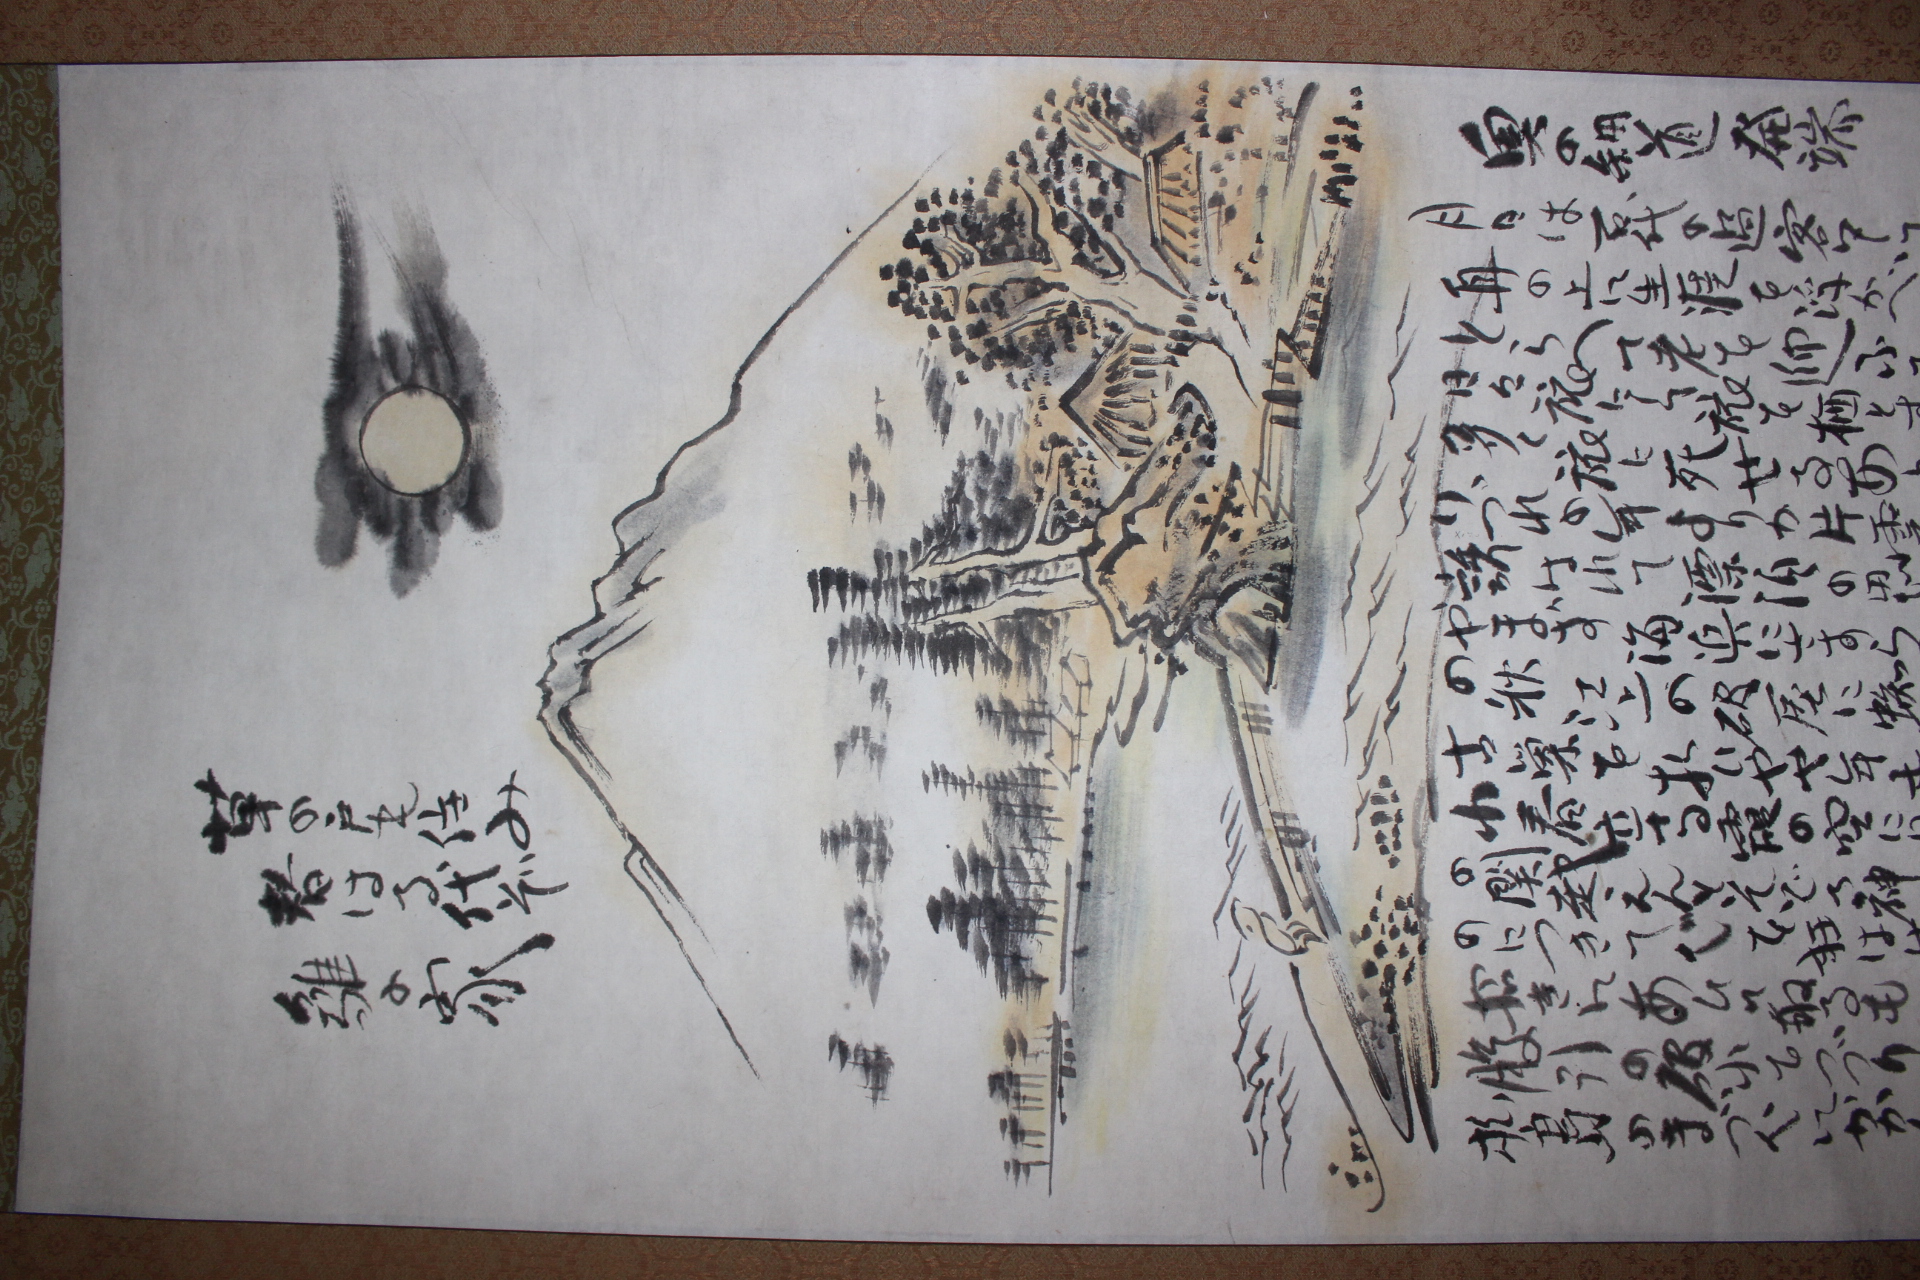 草の戸も住み
替はる代ぞ
雛の家
奥の細道 発端
月日は百代の過客にして
舟の上に生涯を浮かべ
とらへて老を迎ふ
日々旅にして旅を栖とす
多く旅に死せるあ
りづれの年よりか片雲
誘はれて漂泊の思
やまず海浜にさすら
の秋江上の破屋に蜘
古巣を払いやや年も
れ春立てる霞の空に
の関越えんとそぞろ神
のにつきて心を狂は
招きにあひて取るも
股引の破れをつづり
松島のまづ心にかか